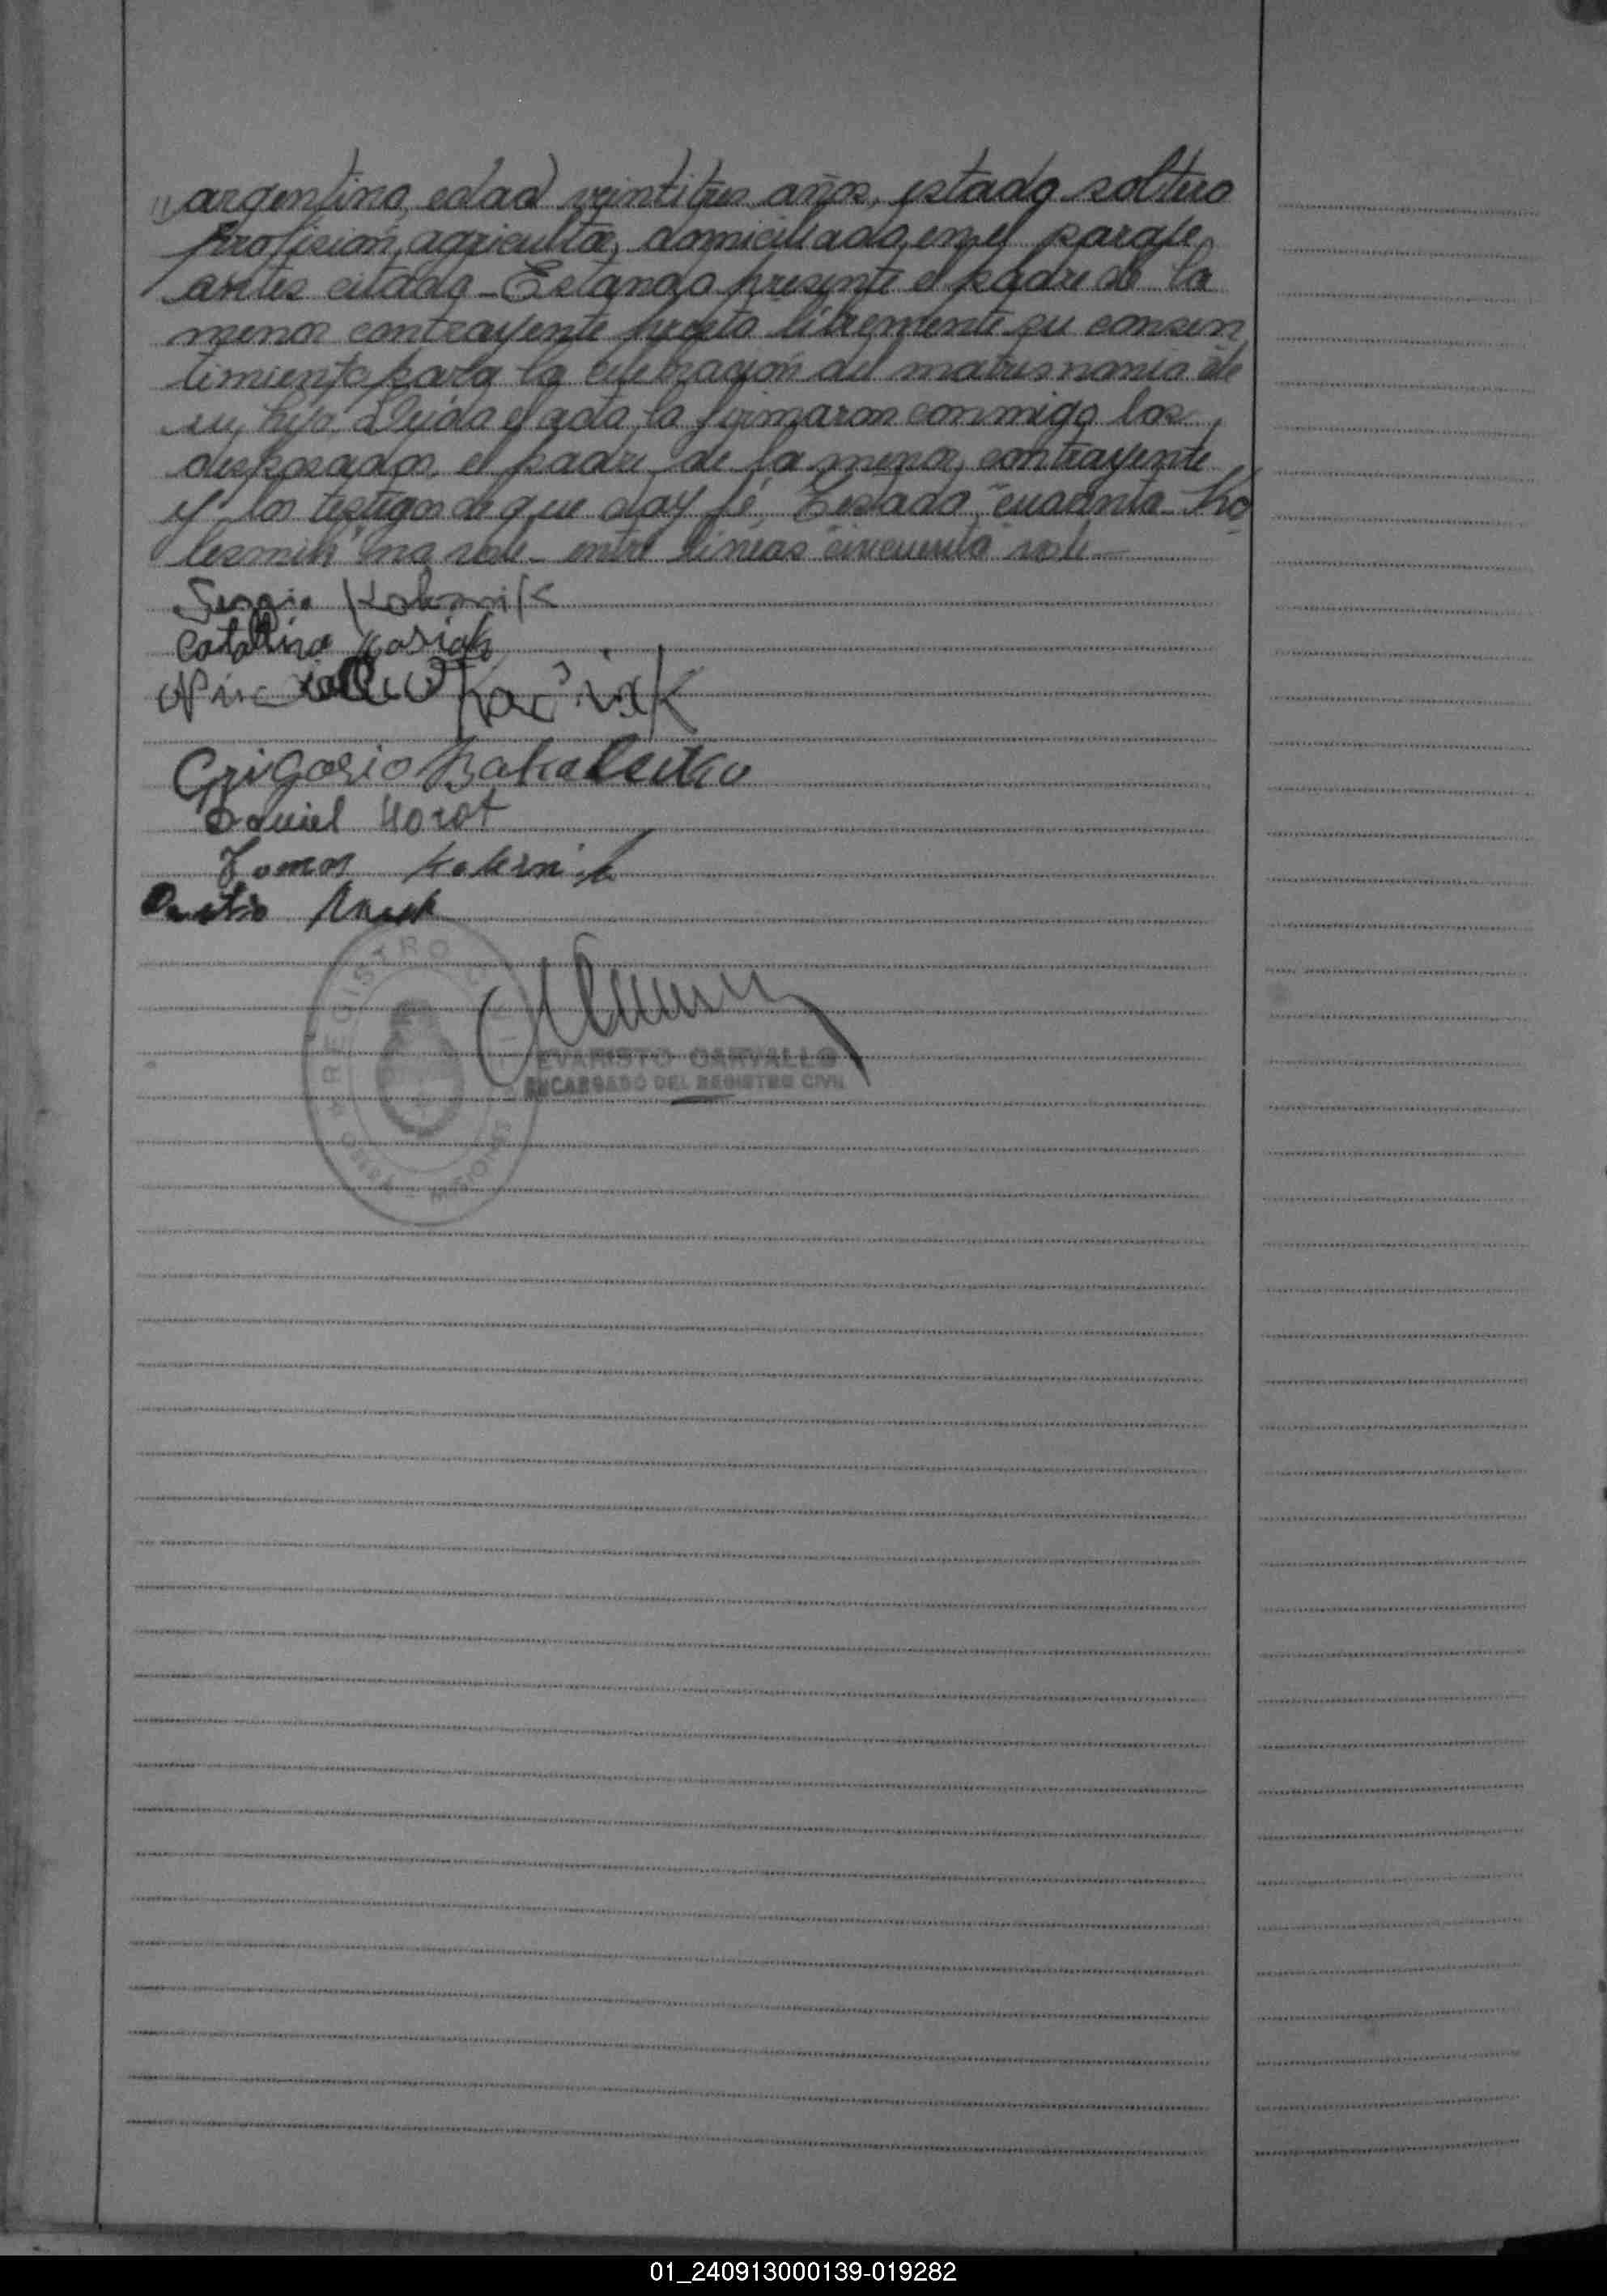 "argentino, edad veintitres años, estado soltero
profesión, agricultor, domiciliado, en el paraje
antes citado - Estando presente el padre de la
menor contrayente presto libremente su consen
timiento para la celebración del matrimonio de
su hija. Leída el acta, la firmaron conmigo los
desposados, el padre de la menor, contrayente
y los testigos de que doy fé, Testado "cuarenta - Ko
lesnik" no vale - entre lineas "cincuenta" vale -
Sergio Kolesnik
Catalina
Grigorio
Daniel Horot
Tomas
REGISTRO
EVARISTO CARVALLO
ENCARGADO DEL REGISTRO CIVIL
01_240913000139-019282